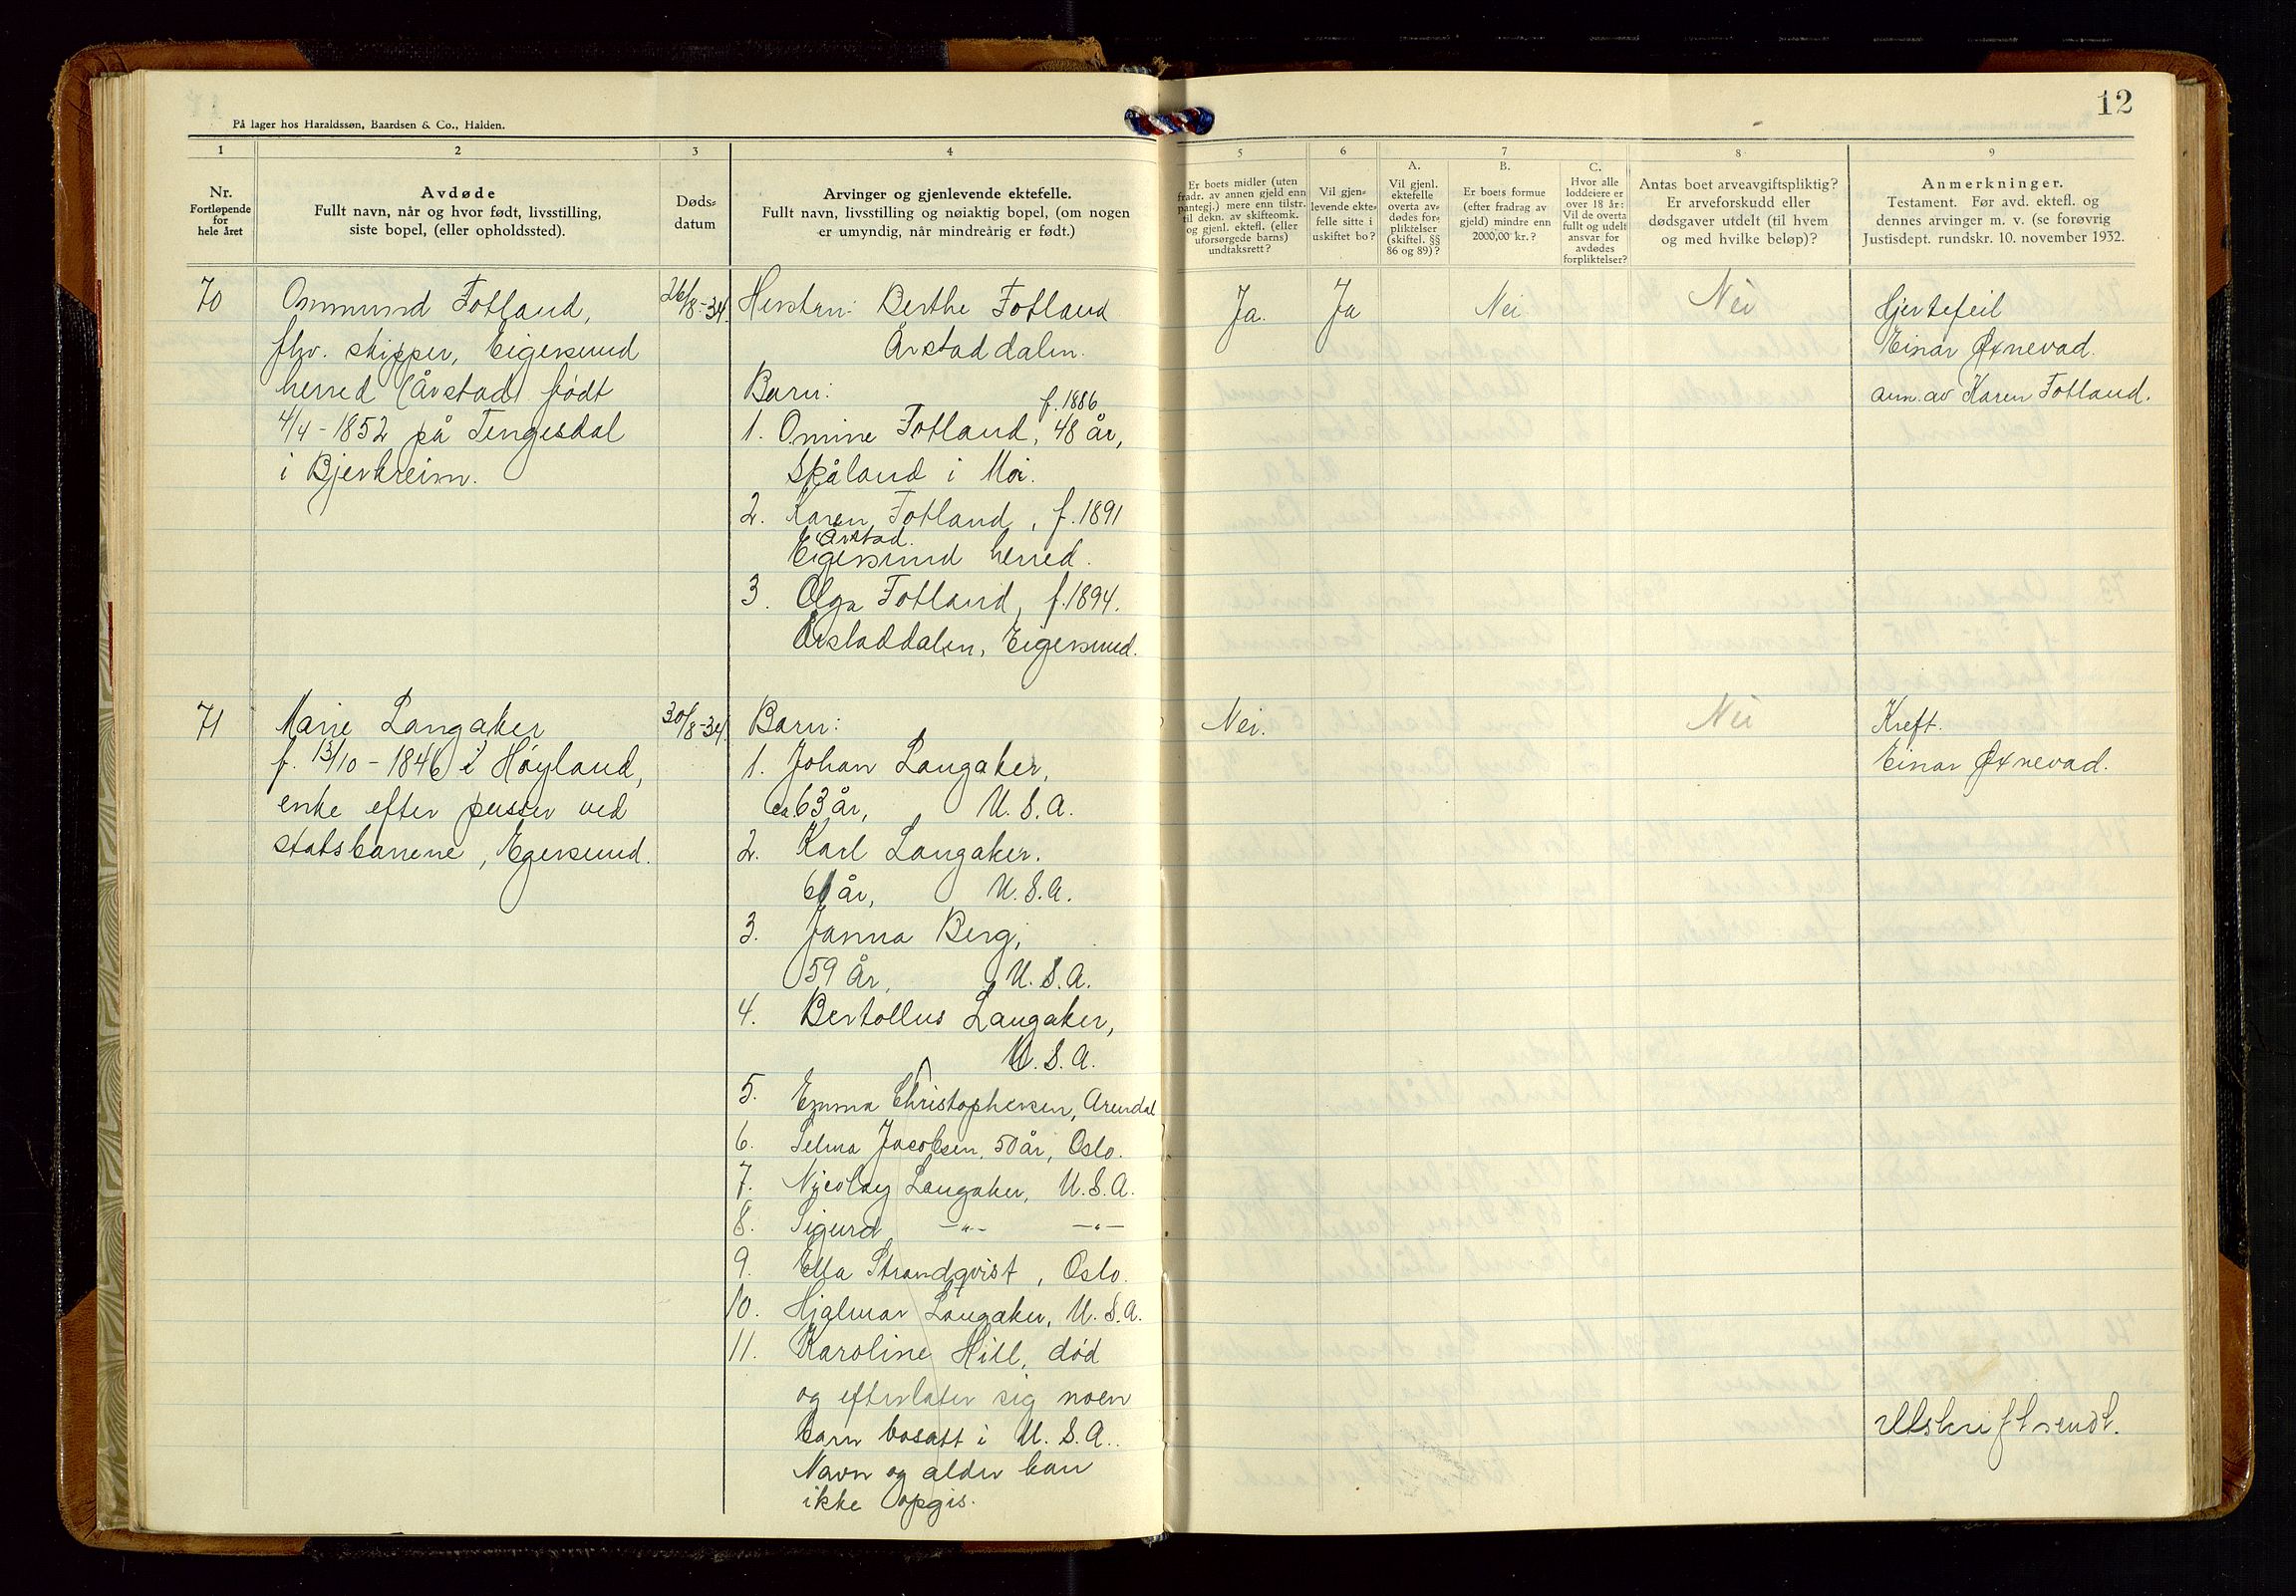 12
På lager hos Haraldssøn, Baardsen & Co., Halden.
1
2
3
4
5
6
7
8
9
Nr.
Fortløpende
for
hele året
Avdøde
Fullt navn, når og hvor født, livsstilling,
siste bopel, (eller opholdssted).
Døds-
datum
Arvinger og gjenlevende ektefelle.
Fullt navn, livsstilling og nøiaktig bopel, (om nogen
er umyndig, når mindreårig er født.)
Er boets midler (uten
fradr. av annen gjeld enn
pantegj.) mere enn tilstr.
til dekn. av skifteomk.
og gjenl. ektefl. (eller
uforsørgede barns)
undtaksrett?
Vil gjen-
levende ekte-
felle sitte i
uskiftet bo?
A.
Vil gjenl.
ektefelle
overta av-
dødes for-
pliktelser
(skiftel. §§
86 og 89)?
B.
Er boets formue
(efter fradrag av
gjeld) mindre enn
2000,00 kr.?
C.
Hvor alle
loddeiere er
over 18 år:
Vil de overta
fullt og udelt
ansvar for
avdødes
forpliktelser?
Antas boet arveavgiftspliktig?
Er arveforskudd eller
dødsgaver utdelt (til hvem
og med hvilke beløp)?
Anmerkninger.
Testament. Før avd. ektefl. og
dennes arvinger m. v. (se forøvrig
Justisdept. rundskr. 10. november 1932.
70
Ommund Fotland,
fhv. skipper, Eigersund
herred (Årstad) født
4/4 - 1852 på Tengesdal
i Bjerkreim.
26/8-34.
Hustru: Berthe Fotland
Årstaddalen.
Barn:
f. 1886
1. Omine Fotland, 48 år,
Skåland i Moi.
2. Karen Fotland, f. 1891
Årstad.
Eigersund herred.
3. Olga Fotland, f. 1894.
Årstaddalen, Eigersund.
Ja.
Ja
Nei
Nei
Hjertefeil
Einar Øxnevad.
anm. av Karen Fotland.
71
Marie Langaker
f. 13/10 - 1846 i Høyland,
enke efter pusser ved
statsbanene, Egersund.
30/8-34.
Barn:
1. Johan Langaker,
ca. 63 år, U.S.A.
2. Karl Langaker.
61 år, U.S.A.
3. Janna Berg,
59 år, U.S.A.
4. Bertollus Langaker,
U.S.A.
5. Emma Christophersen, Arendal
6. Selma Jacobsen, 50 år, Oslo.
7. Nicolay Langaker, U.S.A.
8. Sigurd -"- -"-
9. Ella Strandqvist, Oslo.
10. Hjalmar Langaker, U.S.A.
11. Karoline Hill, død
og efterlater sig noen
barn bosatt i U.S.A.
Navn og alder kan
ikke opgis.
Nei.
Nei
Kreft.
Einar Øxnevad.
Utskrift sendt.